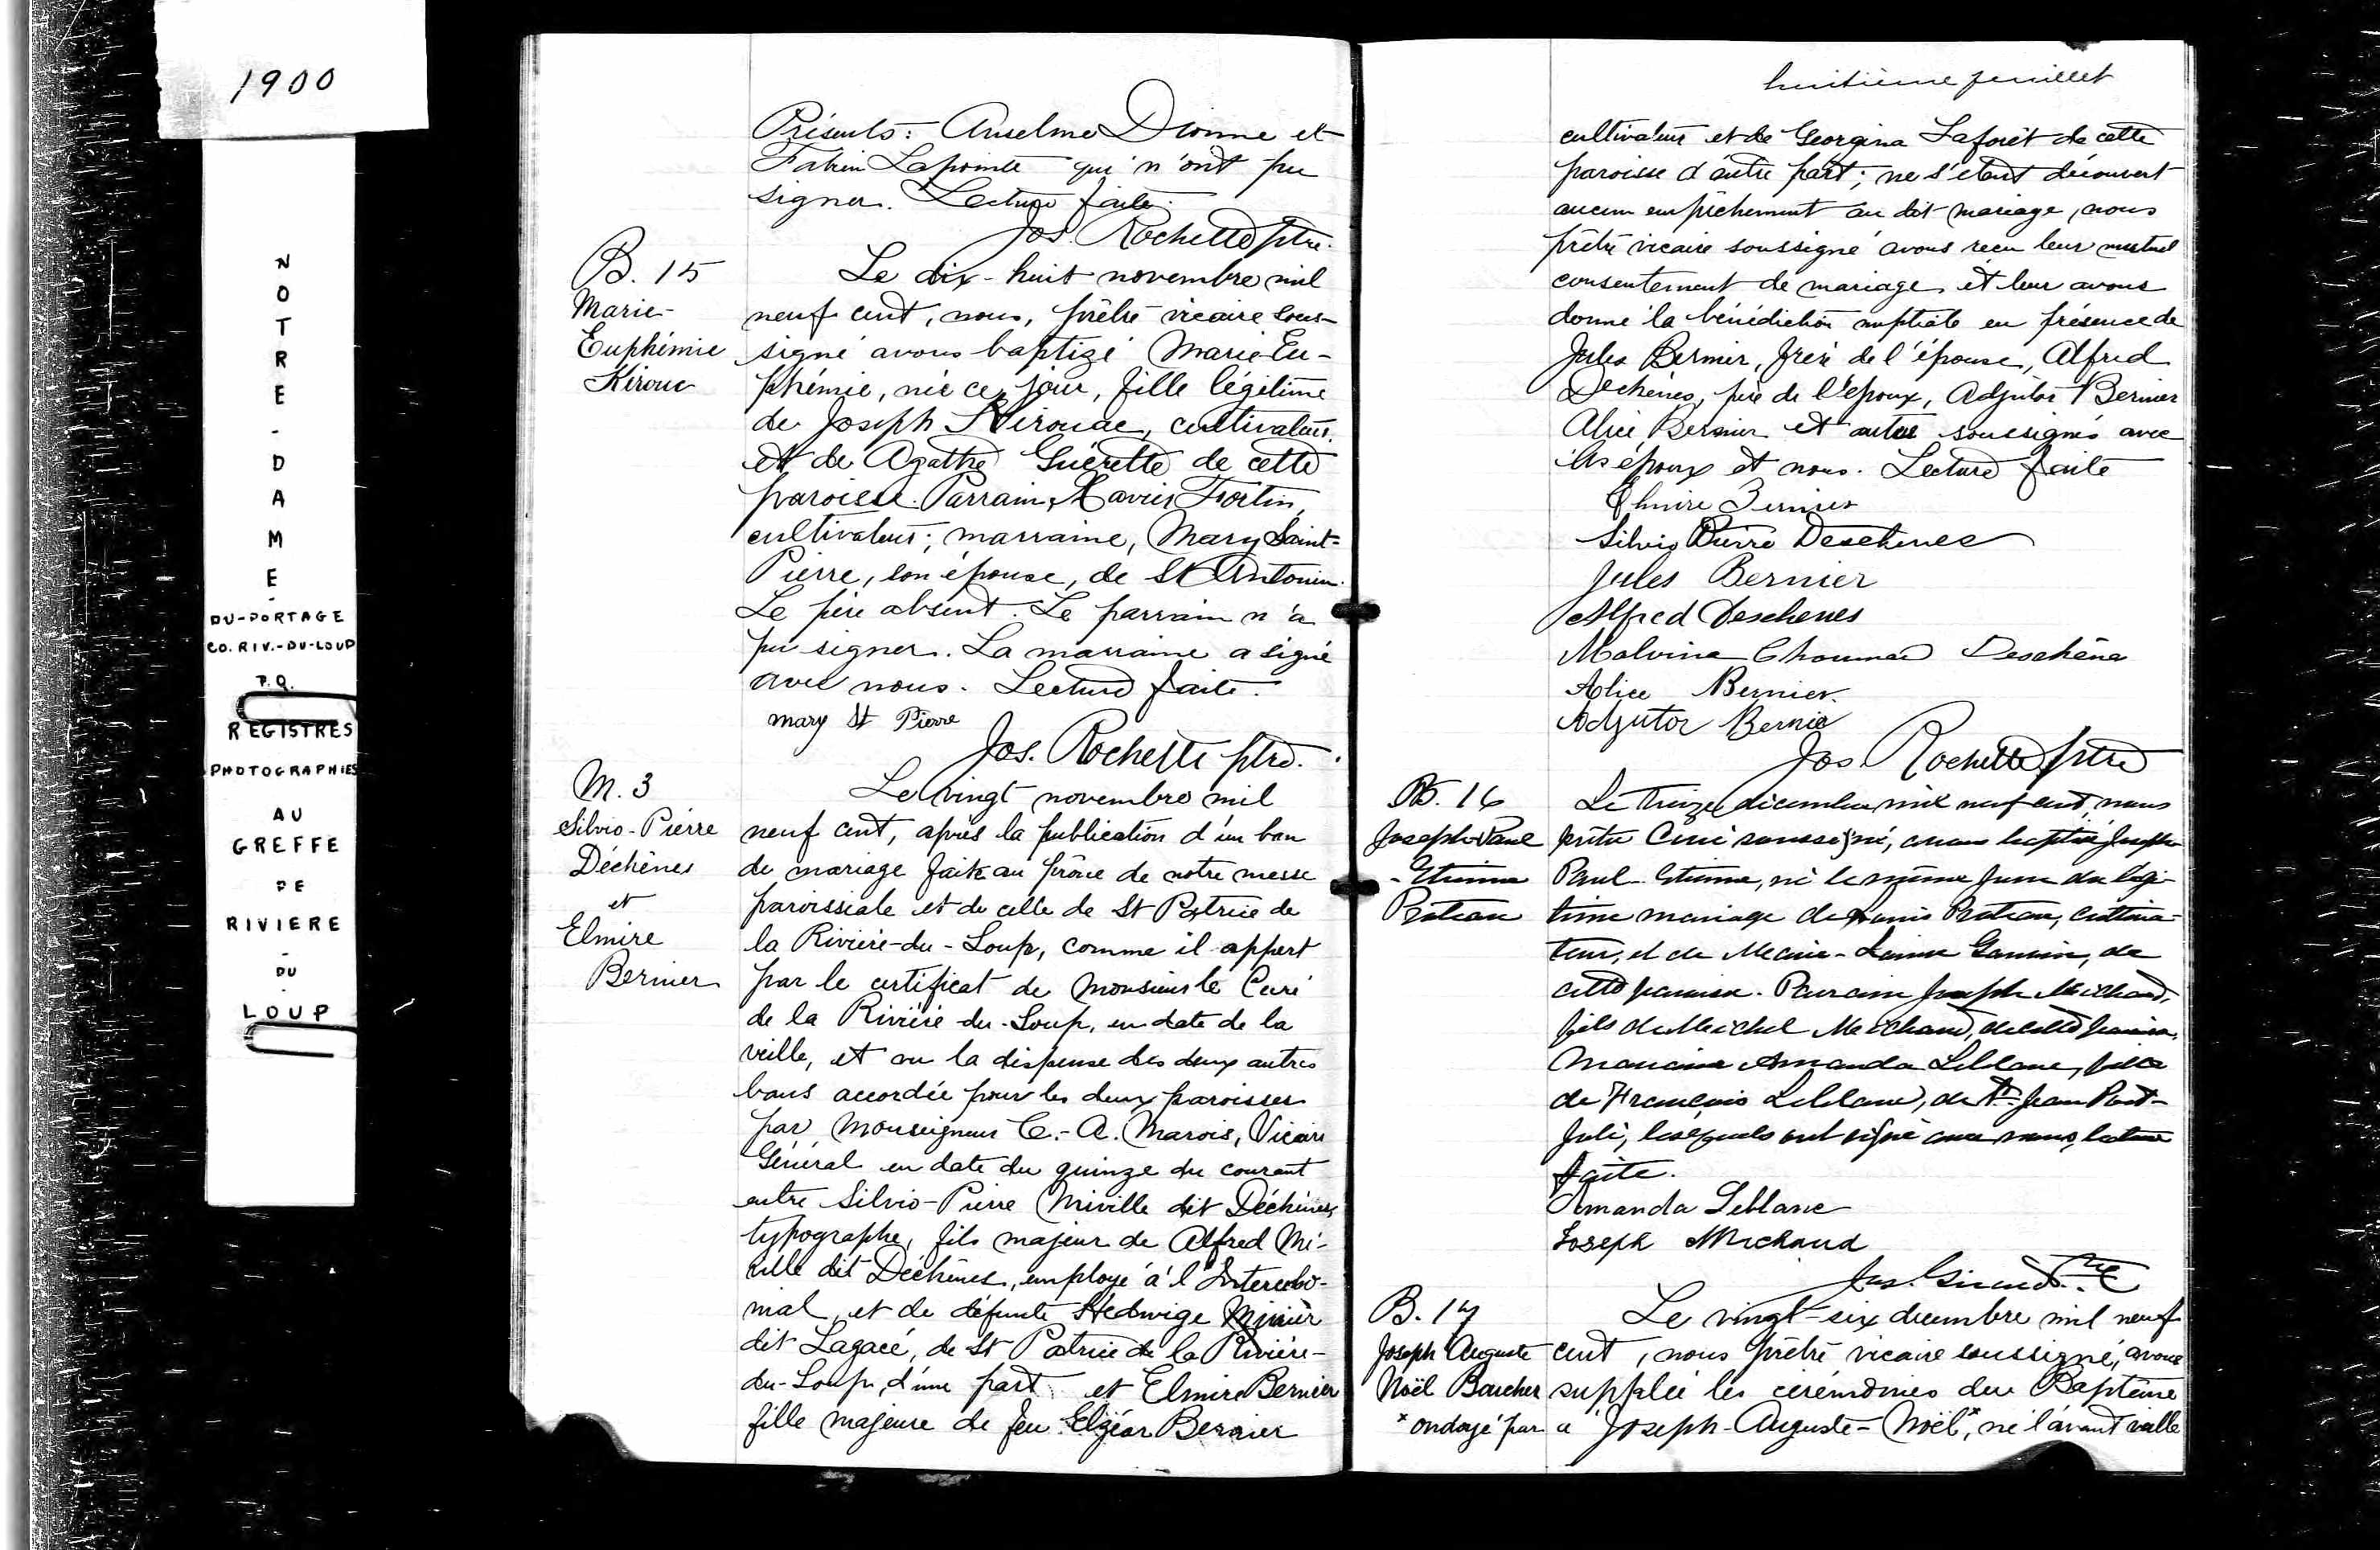 1900
NOTRE-DAME-
DU-PORTAGE
CO. RIV.-DU-LOUP
P.Q.
REGISTRES
PHOTOGRAPHIES
AU
GREFFE
DE
RIVIERE
-
DU
-
LOUP
Présents: Anselme Dionne et
Fabien Lapointe qui n'ont pu
signer. Lecture faite.
Jos. Rochette ptre.
B. 15
Marie-
Euphémie
Kirouc
Le dix-huit novembre mil
neuf cent, nous, prêtre vicaire sous-
signé avons baptizé Marie-Eu-
phémie, née ce jour, fille légitime
de Joseph Kirouac, cultivateur,
et de Agathe Guérette de cette
paroisse. Parrain, Xavier Fortin,
cultivateur; marraine, Mary Saint-
Pierre, son épouse, de St Antonin.
Le père absent. Le parrain n'a
pu signer. La marraine a signé
avec nous. Lecture faite.
mary St Pierre
Jos. Rochette ptre.
M. 3
Silvio-Pierre
Déchênes
et
Elmire
Bernier
Le vingt novembre mil
neuf cent, après la publication d'un ban
de mariage faite au prône de notre messe
paroissiale et de celle de St Patrice de
la Rivière-du-Loup, comme il appert
par le certificat de Monsieur le Curé
de la Rivière-du-Loup, en date de la
veille, et vu la dispense des deux autres
bans accordée pour les deux paroisses
par Monseigneur C.-A. Marois, Vicaire
Général en date du quinze du courant
entre Silvio-Pierre Miville dit Déchênes,
typographe, fils majeur de Alfred Mi-
ville dit Déchênes, employé à l'Intercolo-
nial, et de défunte Hedwige Minier
dit Lagacé, de St Patrice de la Rivière-
du-Loup, d'une part, et Elmire Bernier
fille majeure de feu Elzéar Bernier
huitième feuillet
cultivateur et de Georgina Laforêt de cette
paroisse d'autre part; ne s'étant découvert
aucun empêchement au dit mariage, nous
prêtre vicaire soussigné avons reçu leur mutuel
consentement de mariage et leur avons
donné la bénédiction nuptiale en présence de
Jules Bernier, frère de l'épouse, Alfred
Dechênes, père de l'époux, Adjutor Bernier
Alice Bernier et autres soussignés avec
les époux et nous. Lecture faite
Elmire Bernier
Silvio Pierre Deschenes
Jules Bernier
Alfred Deschenes
Malvina Chouinard Deschêne
Alice Bernier.
Adjutor Bernier
Jos. Rochette ptre
B. 16
Joseph-Paul
-Etienne
Proteau
Le treize décembre mil neuf cent, nous
prêtre Curé soussigné, avons baptisé Joseph
Paul-Etienne, né le même jour du légi-
time mariage de Proteau, cultiva-
teur, et de Marie- de
cette paroisse. Parrain Joseph Michaud,
fils de Michel Michaud, de cette paroisse,
Marraine Amanda Leblanc, fille
de François Leblanc, de St-Jean Port-
Joli, lesquels ont signé avec nous, lecture
faite.
Amanda Leblanc
Joseph Michaud
B. 17
Joseph Auguste
Noël Boucher
* ondoyé par
Le vingt-six décembre mil neuf
cent, nous prêtre vicaire soussigné, avons
supplée les cérémonies du Baptême
à Joseph-Auguste-Noël*, né l'avant veille